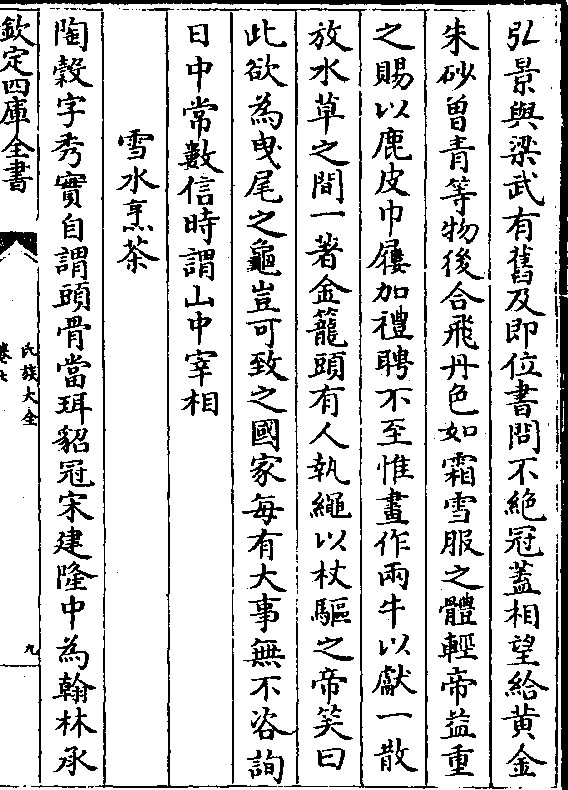 弘景與梁武有舊及即位書問不絶冠蓋相望給黄金
朱砂曾青等物後合飛丹色如霜雪服之體輕帝益重
之賜以鹿皮巾屨加禮聘不至惟畫作兩牛以獻一散
放水草之間一著金籠頭有人執繩以杖驅之帝笑曰
此欲為曳尾之龜豈可致之國家每有大事無不咨詢
日中常數信時謂山中宰相
雪水烹茶
陶穀字秀實自謂頭骨當珥貂冠宋建隆中為翰林承
欽定四庫全書
氏族大全
卷七
九